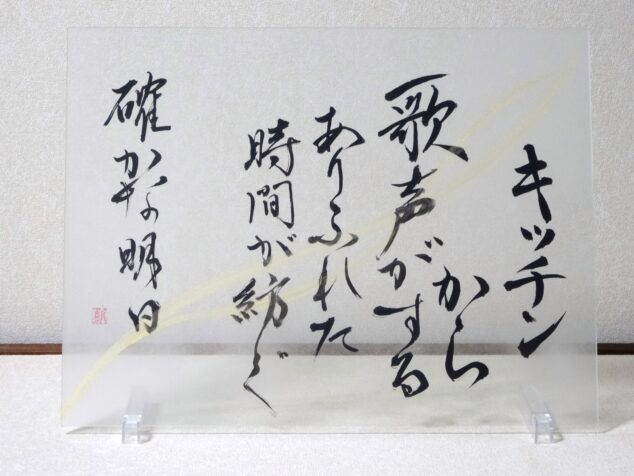 キッチン
から
歌声がする
ありふれた
時間が紡ぐ
確かな明日